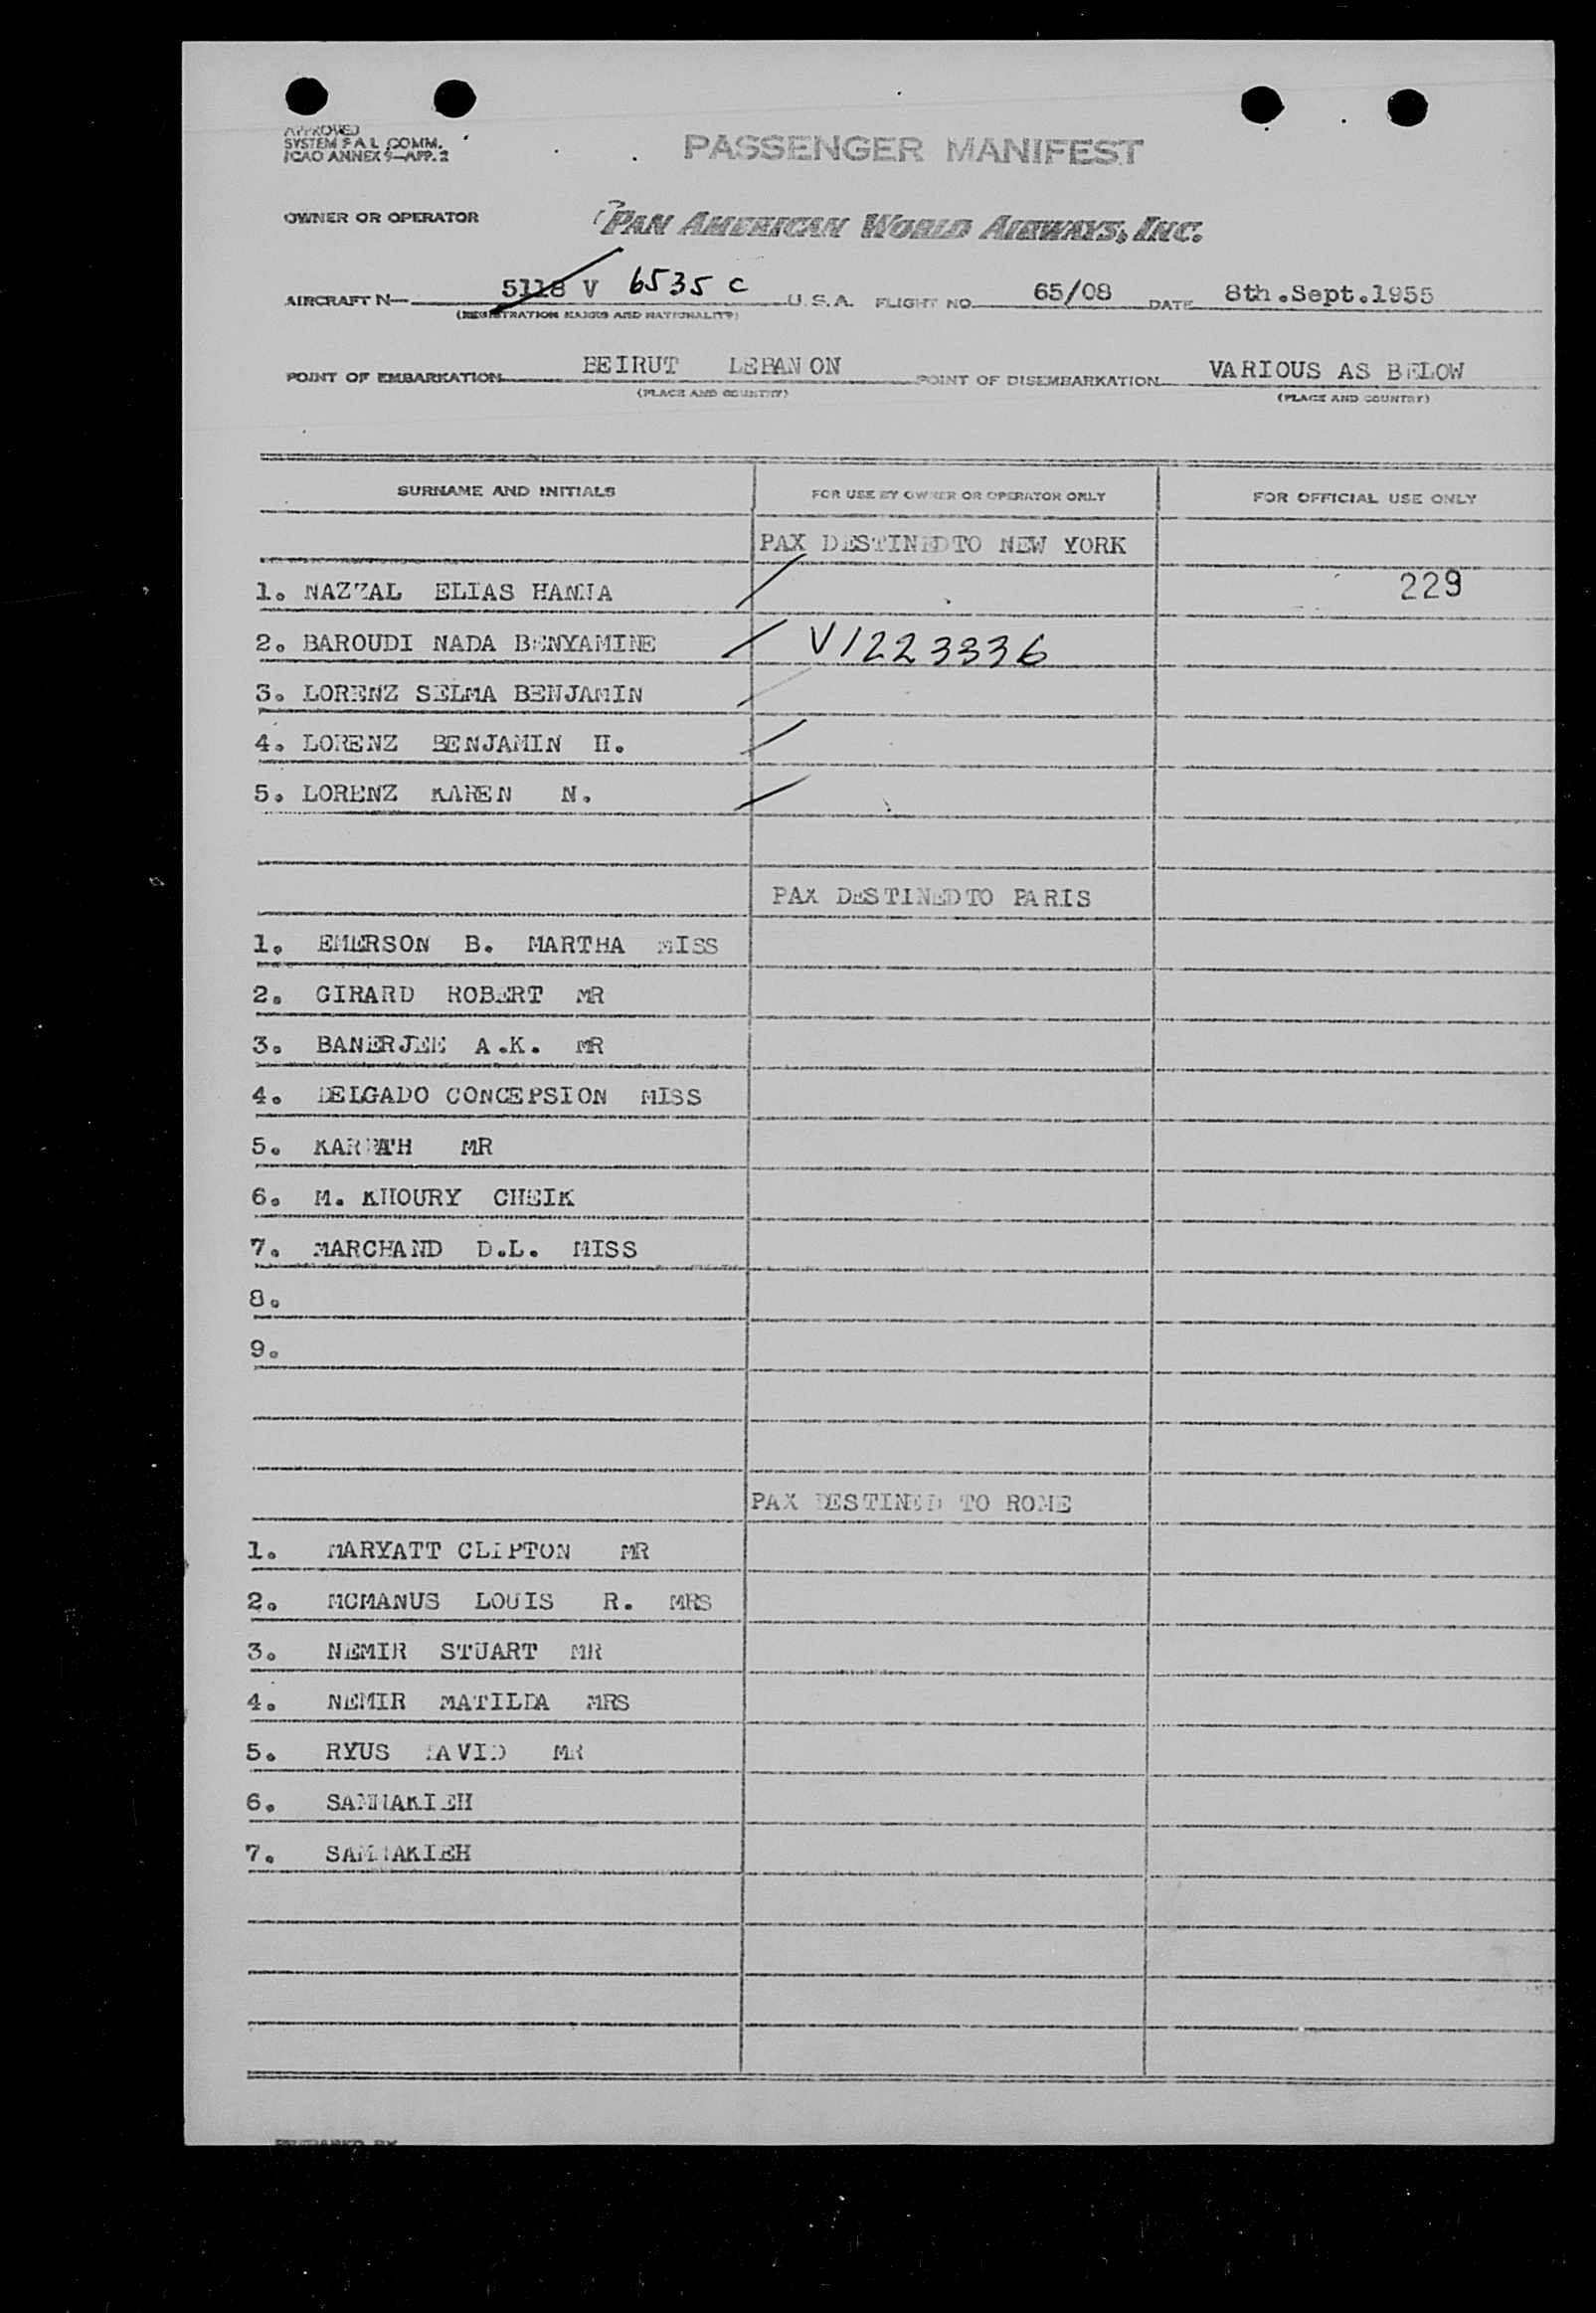 APPROVED
SYSTEM F A L COMM.
ICAO ANNEX 9—APP. 2
PASSENGER MANIFEST
OWNER OR OPERATOR PAN AMERICAN WORLD AIRWAYS, INC.
AIRCRAFT N— 5118 V 6535 C U. S. A. FLIGHT NO. 65/08 DATE 8th.Sept.1955
(REGISTRATION MARKS AND NATIONALITY)
POINT OF EMBARKATION BEIRUT LEBANON POINT OF DISEMBARKATION VARIOUS AS BELOW
(PLACE AND COUNTRY) (PLACE AND COUNTRY)
SURNAME AND INITIALS FOR USE BY OWNER OR OPERATOR ONLY FOR OFFICIAL USE ONLY
PAX DESTINED TO NEW YORK
1. NAZZAL ELIAS HANNA 229
2. BAROUDI NADA BENYAMINE V1223336
3. LORENZ SELMA BENJAMIN
4. LORENZ BENJAMIN H.
5. LORENZ KAREN N.
PAX DESTINED TO PARIS
1. EMERSON B. MARTHA MISS
2. GIRARD ROBERT MR
3. BANERJEE A.K. MR
4. DELGADO CONCEPSION MISS
5. MR
6. M. KHOURY CHEIK
7. MARCHAND D.L. MISS
8.
9.
PAX DESTINED TO ROME
1. MARYATT CLIPTON MR
2. MCMANUS LOUIS R. MRS
3. NEMIR STUART MR
4. NEMIR MATILDA MRS
5. RYUS DAVID MR
6. SAMMAKIEH
7. SAMMAKIEH